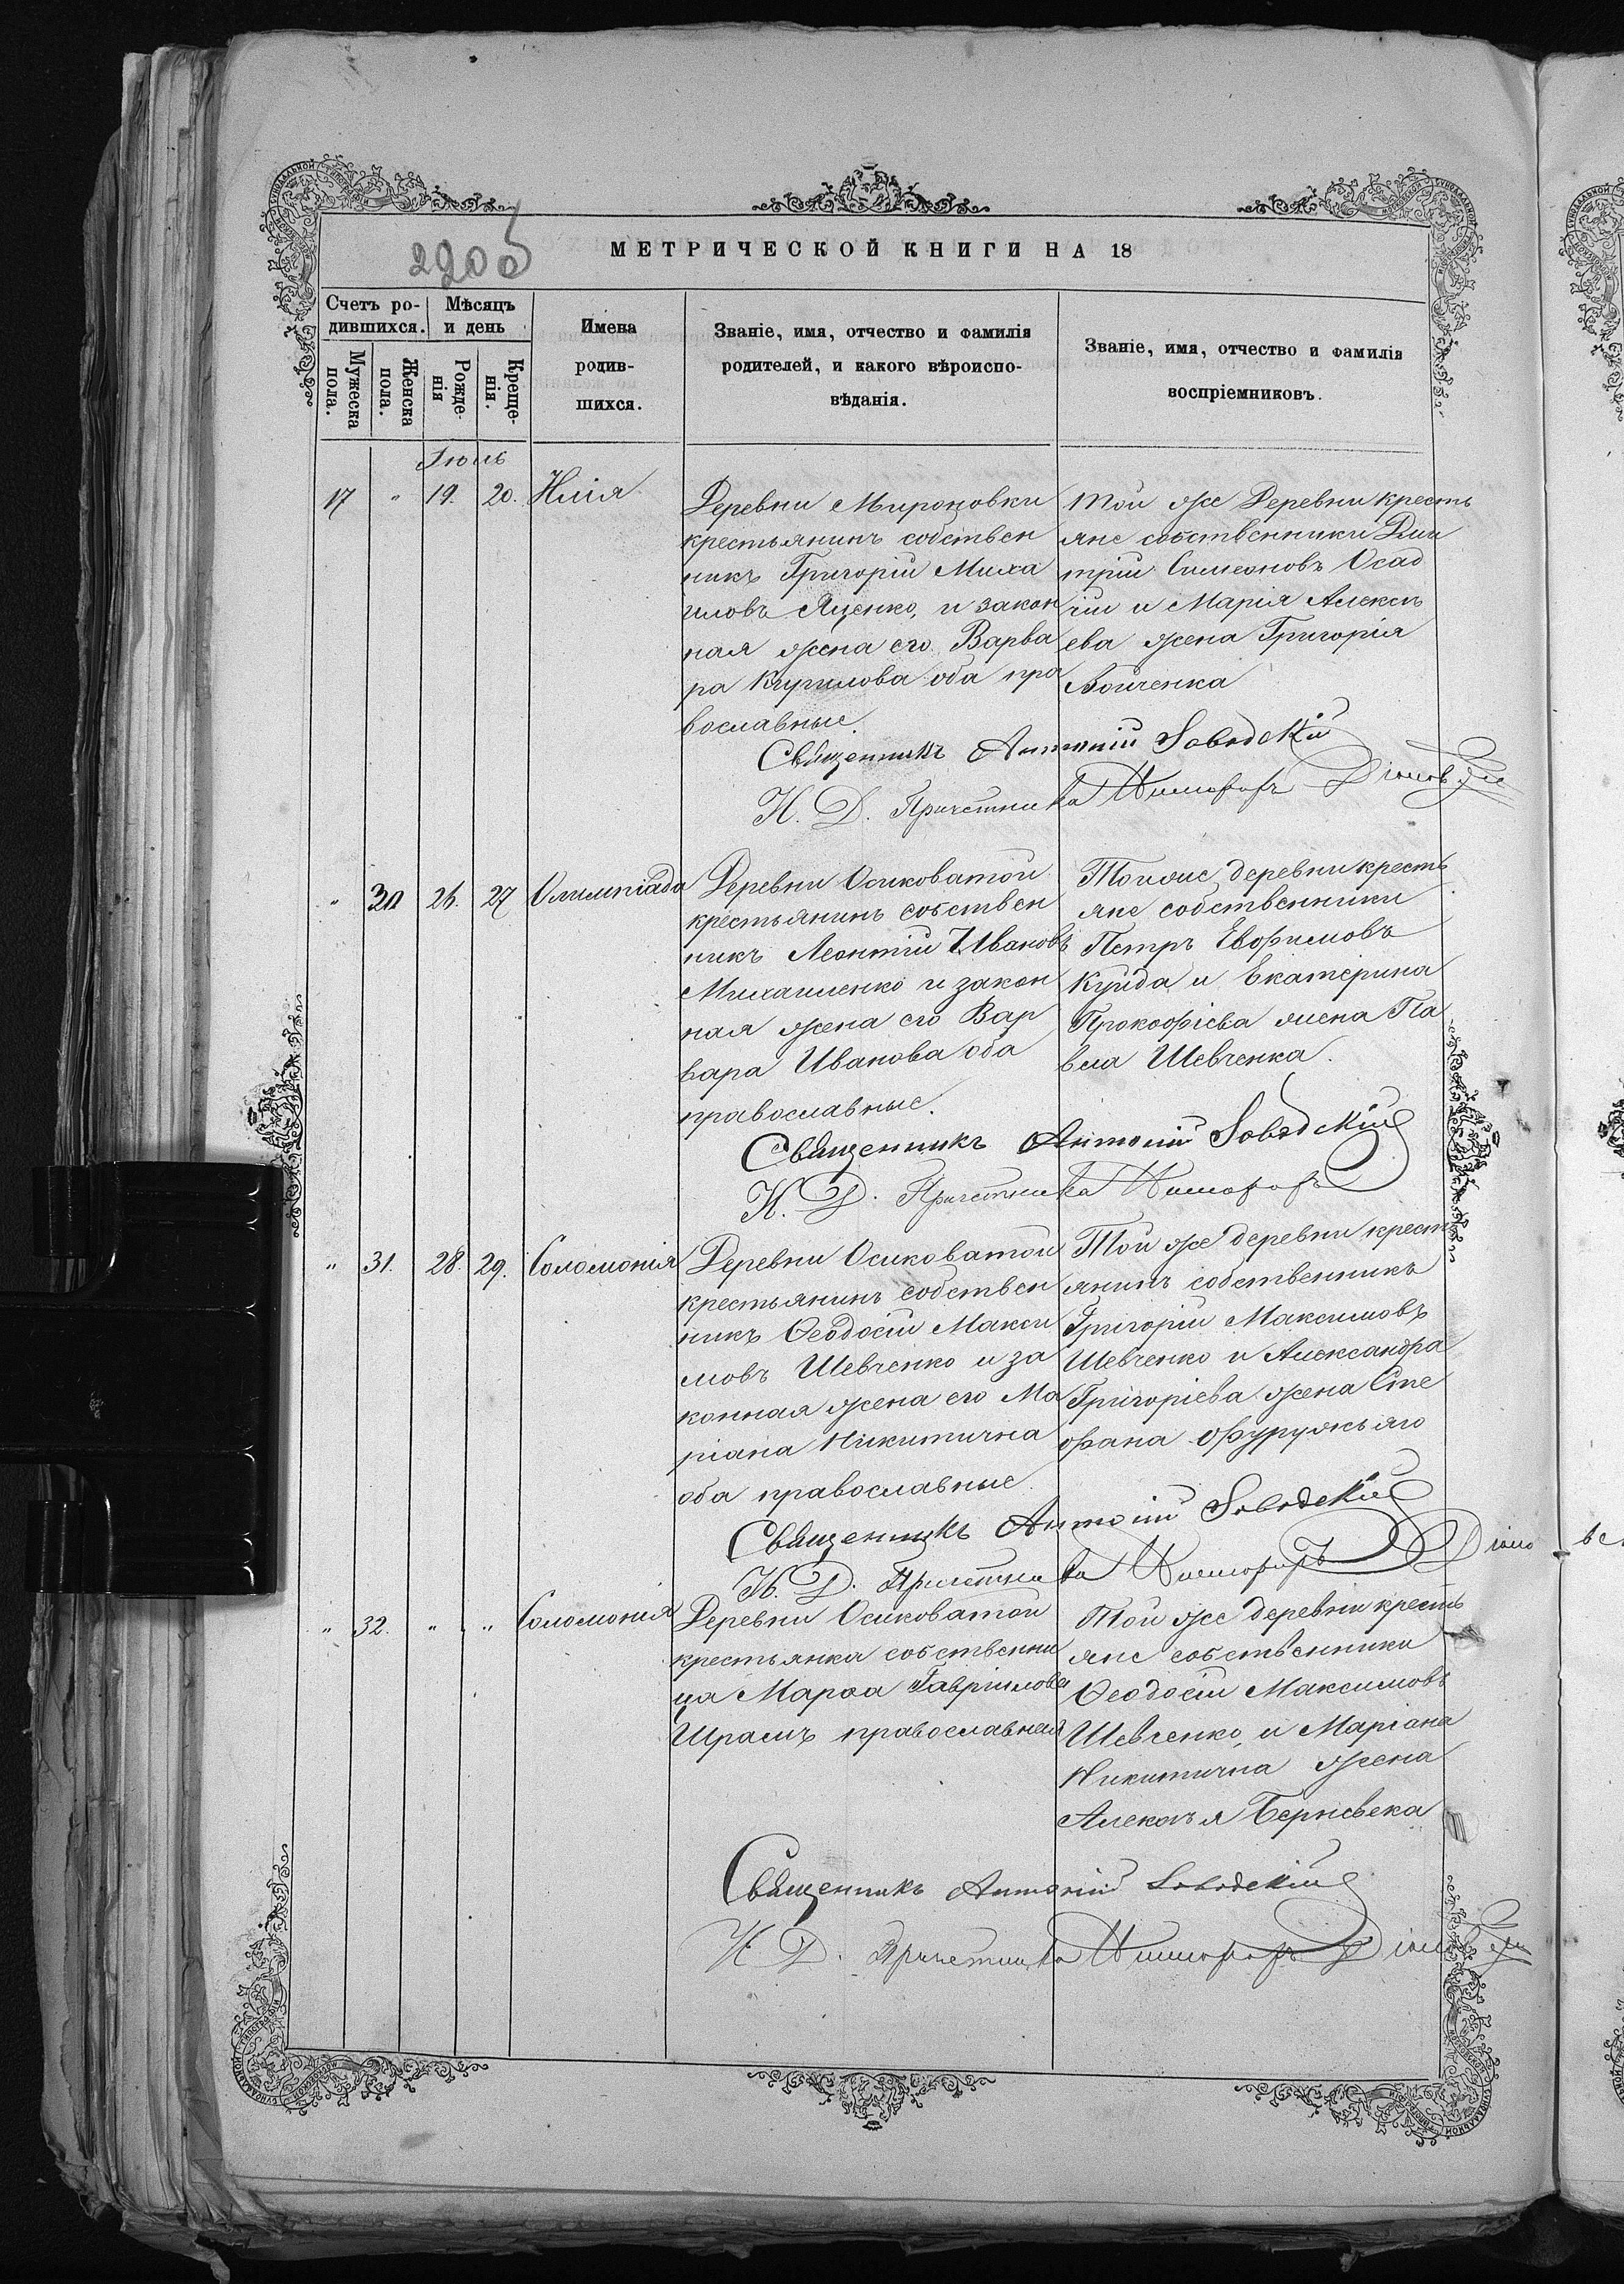 2205
МЕТРИЧЕСКОЙ КНИГИ НА 18
Счетъ ро-
дившихся.
Мѣсяцъ
и день
Мужеска
пола.
Женска
пола.
Рожде-
нія
Креще-
нія.
Имена
родив-
шихся.
Званіе, имя, отчество и фамилія
родителей, и какого вѣроиспо-
вѣданія.
Званіе, имя, отчество и фамилія
воспріемниковъ.
Іюль
17 " 19. 20. Илія
Деревни Мироновки
крестьянинъ собствен
никъ Григорій Миха
иловъ Яценко, и закон
ная жена его Варва
ра Кирилова оба пра
вославные.
Той же Деревни кресть
яне собственники Дми
трій Симеоновъ Осад
чій и Марія Алексѣ
ева жена Григорія
Бойченка
Священникъ Антоній
И. Д. Причетника
" 30 26. 27 Олимпіада
Деревни Осиковатой
крестьянинъ собствен
никъ Леонтій Ивановъ
Михайленко и закон
ная жена его Вар
вара Иванова оба
православные.
Той же деревни кресть
яне собственники
Петръ Евфимовъ
Куйда и Екатерина
Прокофіева жена Па
вла Шевченка.
Священникъ Антоній
И. Д. Причетника
" 31. 28. 29. Соломонія
Деревни Осиковатой
крестьянинъ собствен
никъ Ѳеодосій Макси
мовъ Шевченко и за
конная жена его Ма
ріана Никитична
оба православные
Той же деревни крест
янинъ собственникъ
Григорій Максимовъ
Шевченко и Александра
Григоріева жена Сте
фана
Священникъ Антоній
И. Д. Причетника
" 32. " " Соломонія
Деревни Осиковатой
крестьянка собственни
ца Марѳа Гавріилова
Шрамъ православная
Той же деревни кресть
яне собственники
Ѳеодосій Максимовъ
Шевченко, и Маріана
Никитична жена
Алексѣя
Священникъ Антоній
И. Д. Причетника